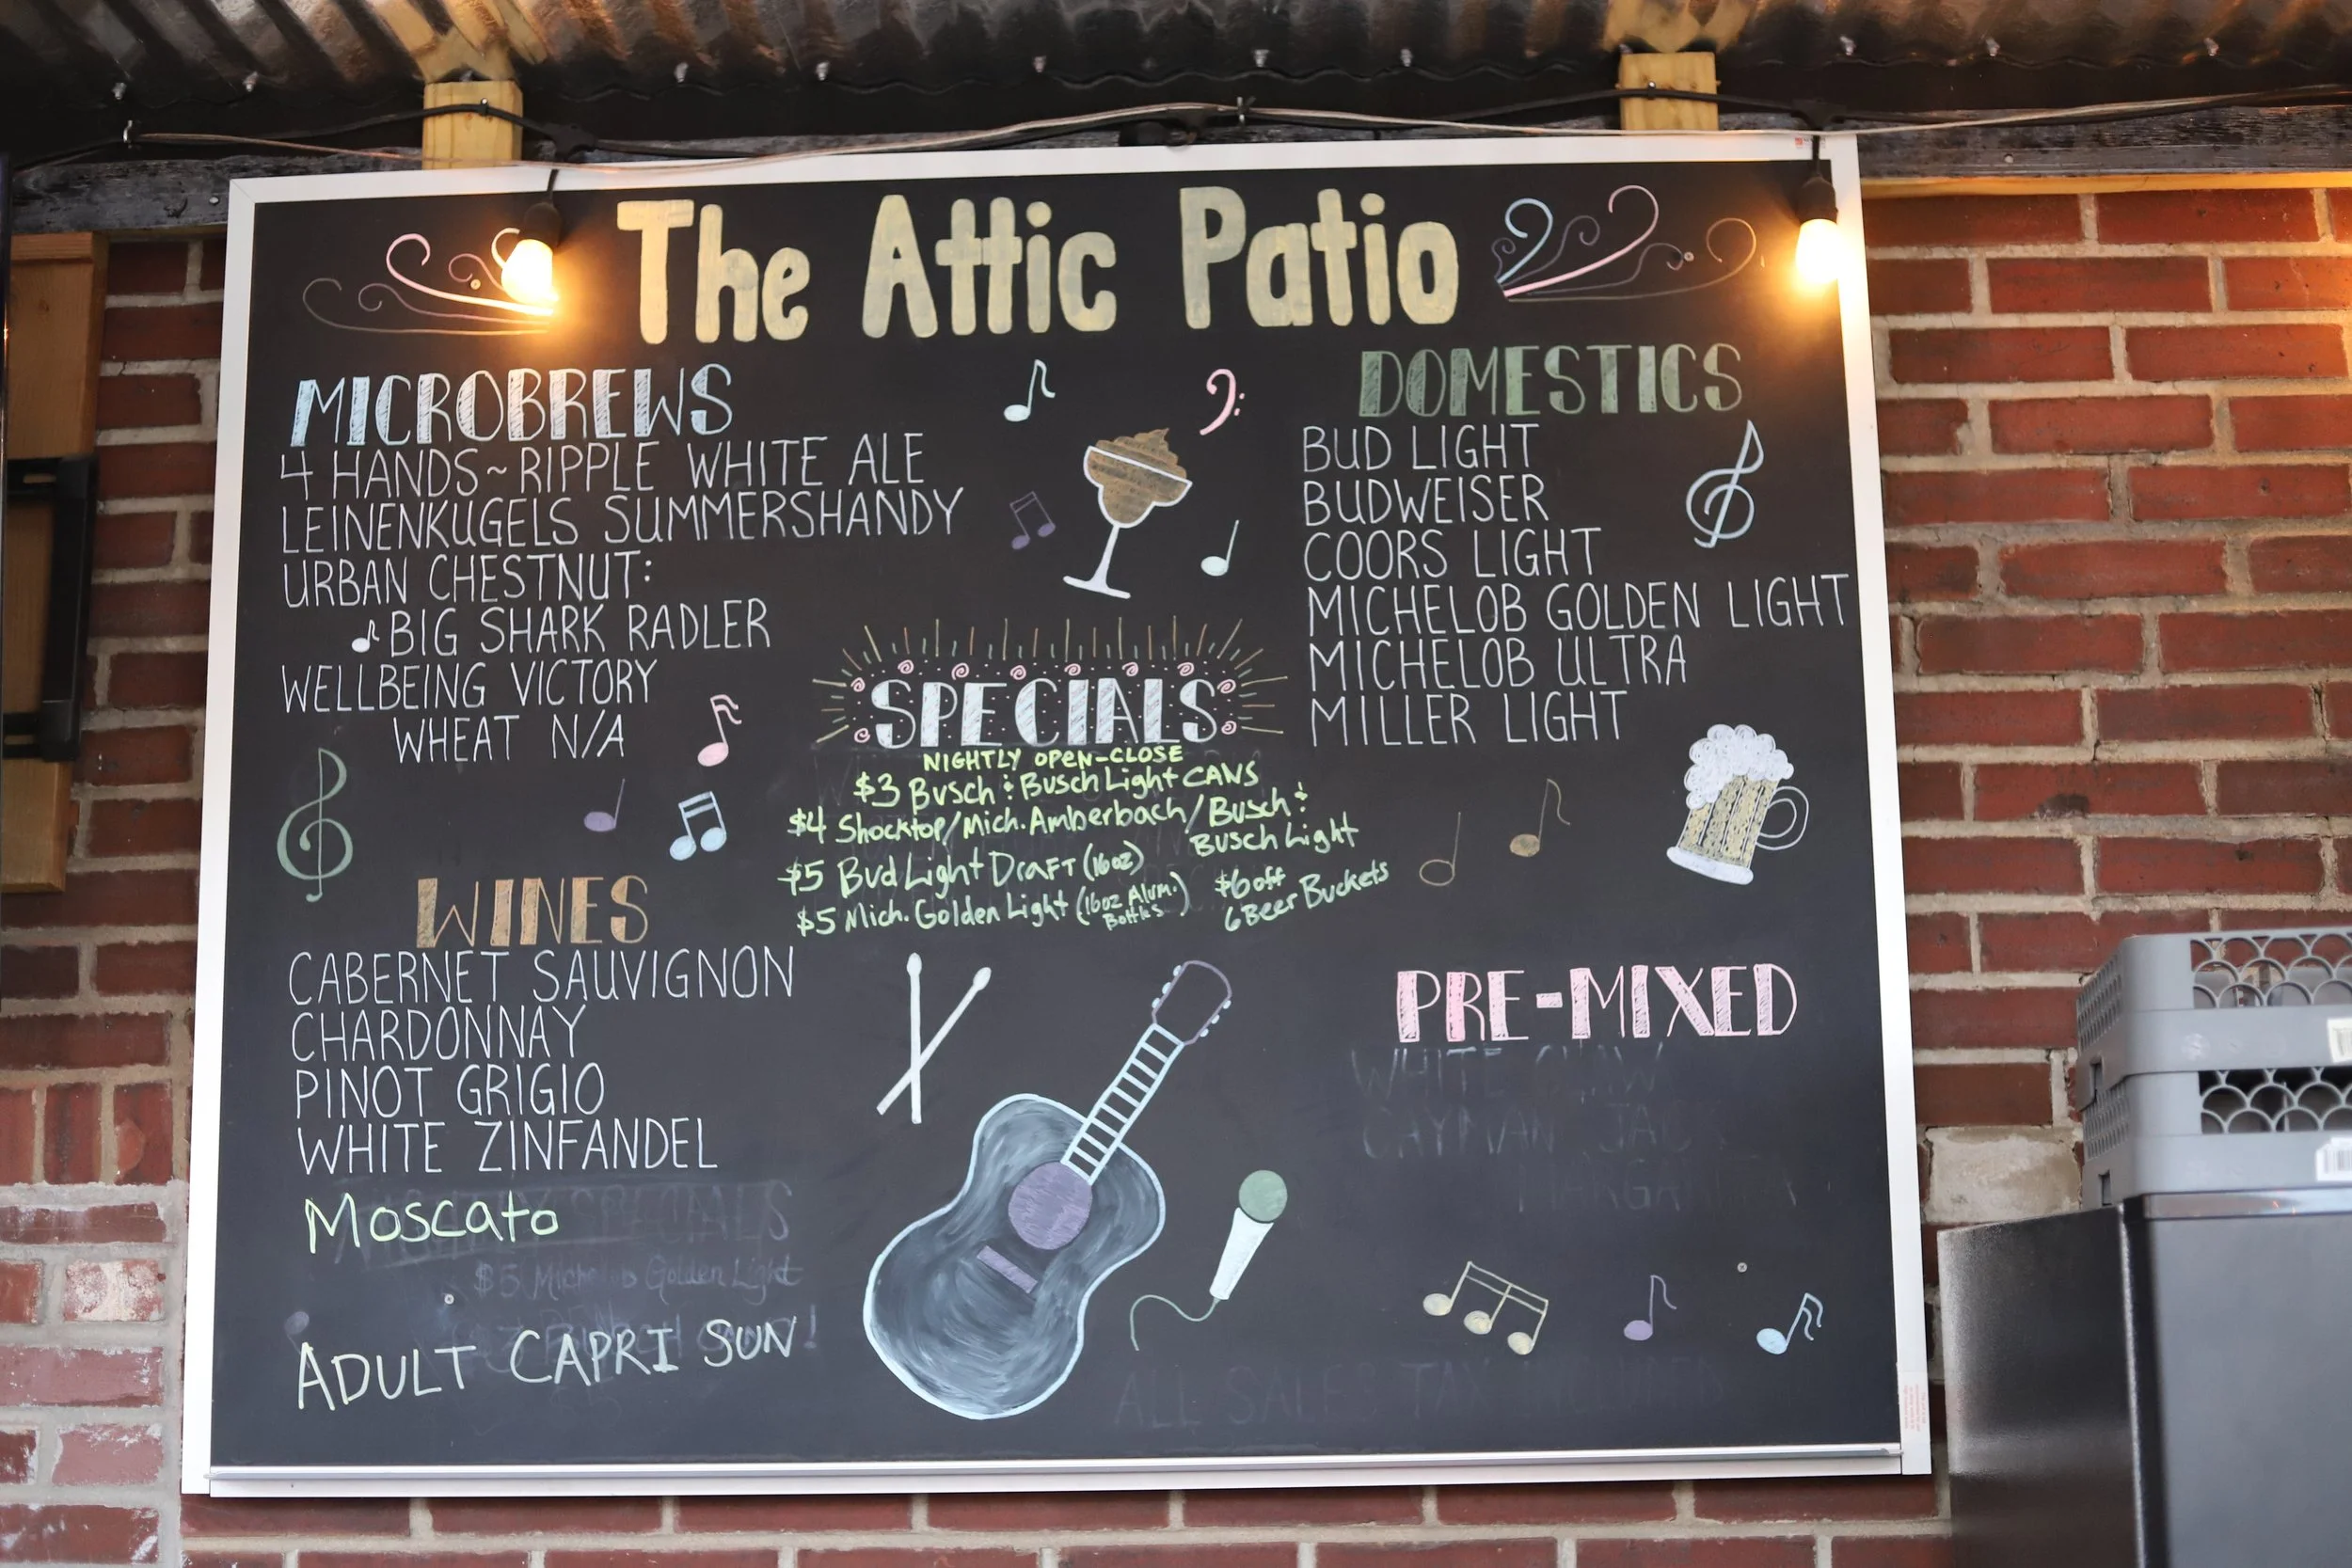 The Attic Patio
MICROBREWS
4 HANDS~RIPPLE WHITE ALE
LEINENKUGELS SUMMERSHANDY
URBAN CHESTNUT:
BIG SHARK RADLER
WELLBEING VICTORY
WHEAT N/A
WINES
CABERNET SAUVIGNON
CHARDONNAY
PINOT GRIGIO
WHITE ZINFANDEL
Moscato
SPECIALS
$5 Michelob Golden Light
ADULT CAPRI SUN!
SPECIALS
NIGHTLY OPEN-CLOSE
$3 Busch & Busch Light CANS
$4 Shocktop/Mich. Amberbach/Busch &
Busch Light
$5 Bud Light Draft (16oz)
$5 Mich. Golden Light (16oz Alum. Bottles)
$6 off
6 Beer Buckets
DOMESTICS
BUD LIGHT
BUDWEISER
COORS LIGHT
MICHELOB GOLDEN LIGHT
MICHELOB ULTRA
MILLER LIGHT
PRE-MIXED
WHITE CLAW
CAYMAN JACK
MARGARITA
ALL SALES TAX INCLUDED